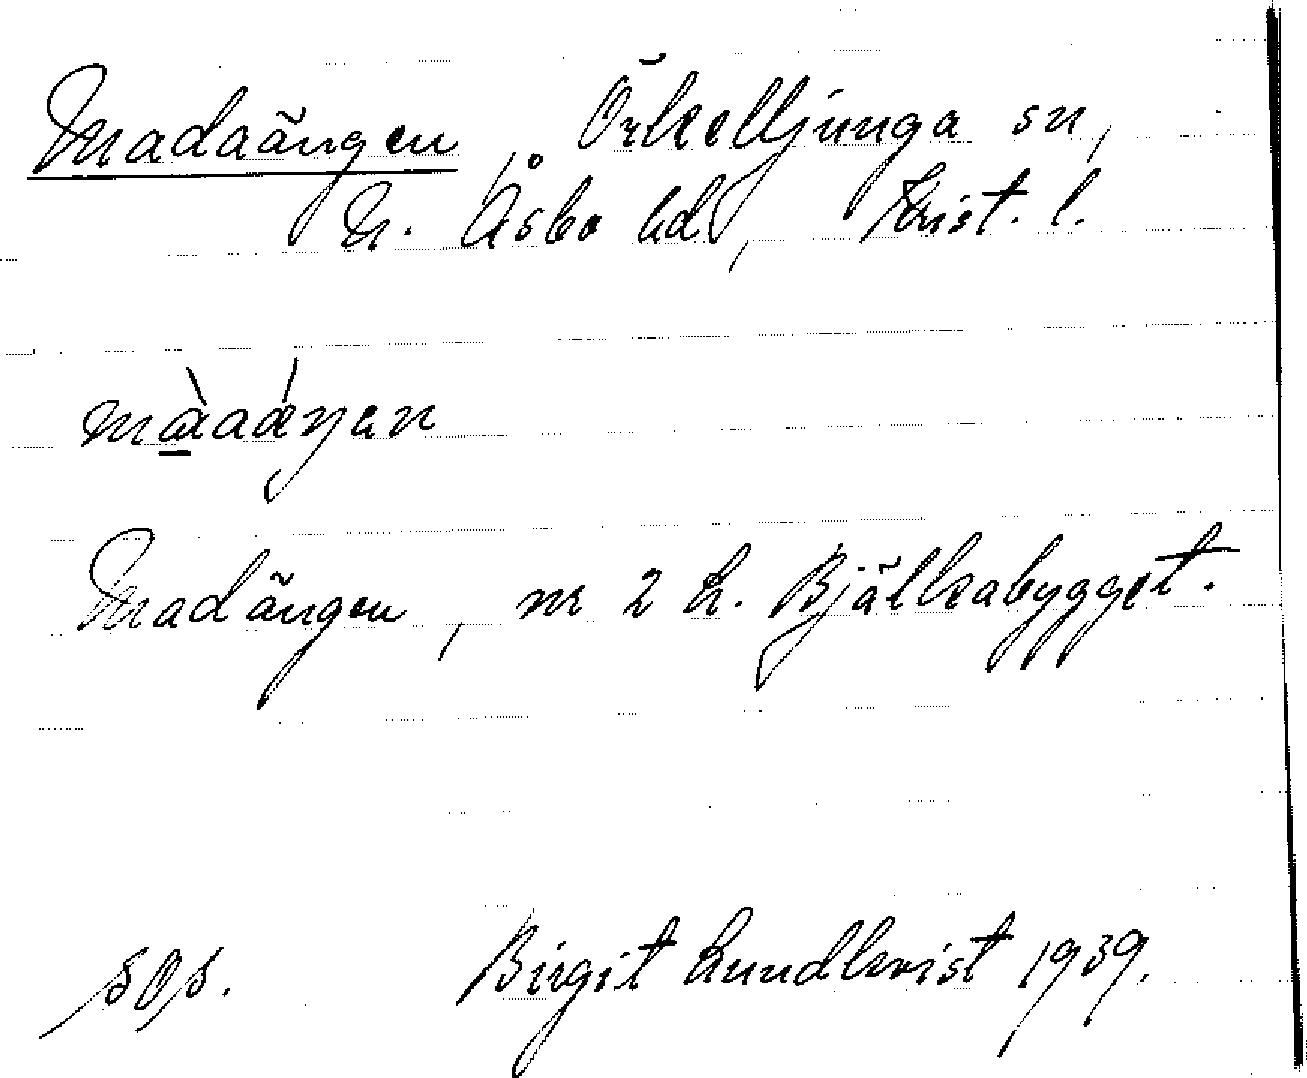 Madaängen, Örkelljunga sn,
N. Åsbo hd, Krist. l.
Madängen, nr 2 h. Bjälkabygget.
sos. Birgit Lundkvist 1939.